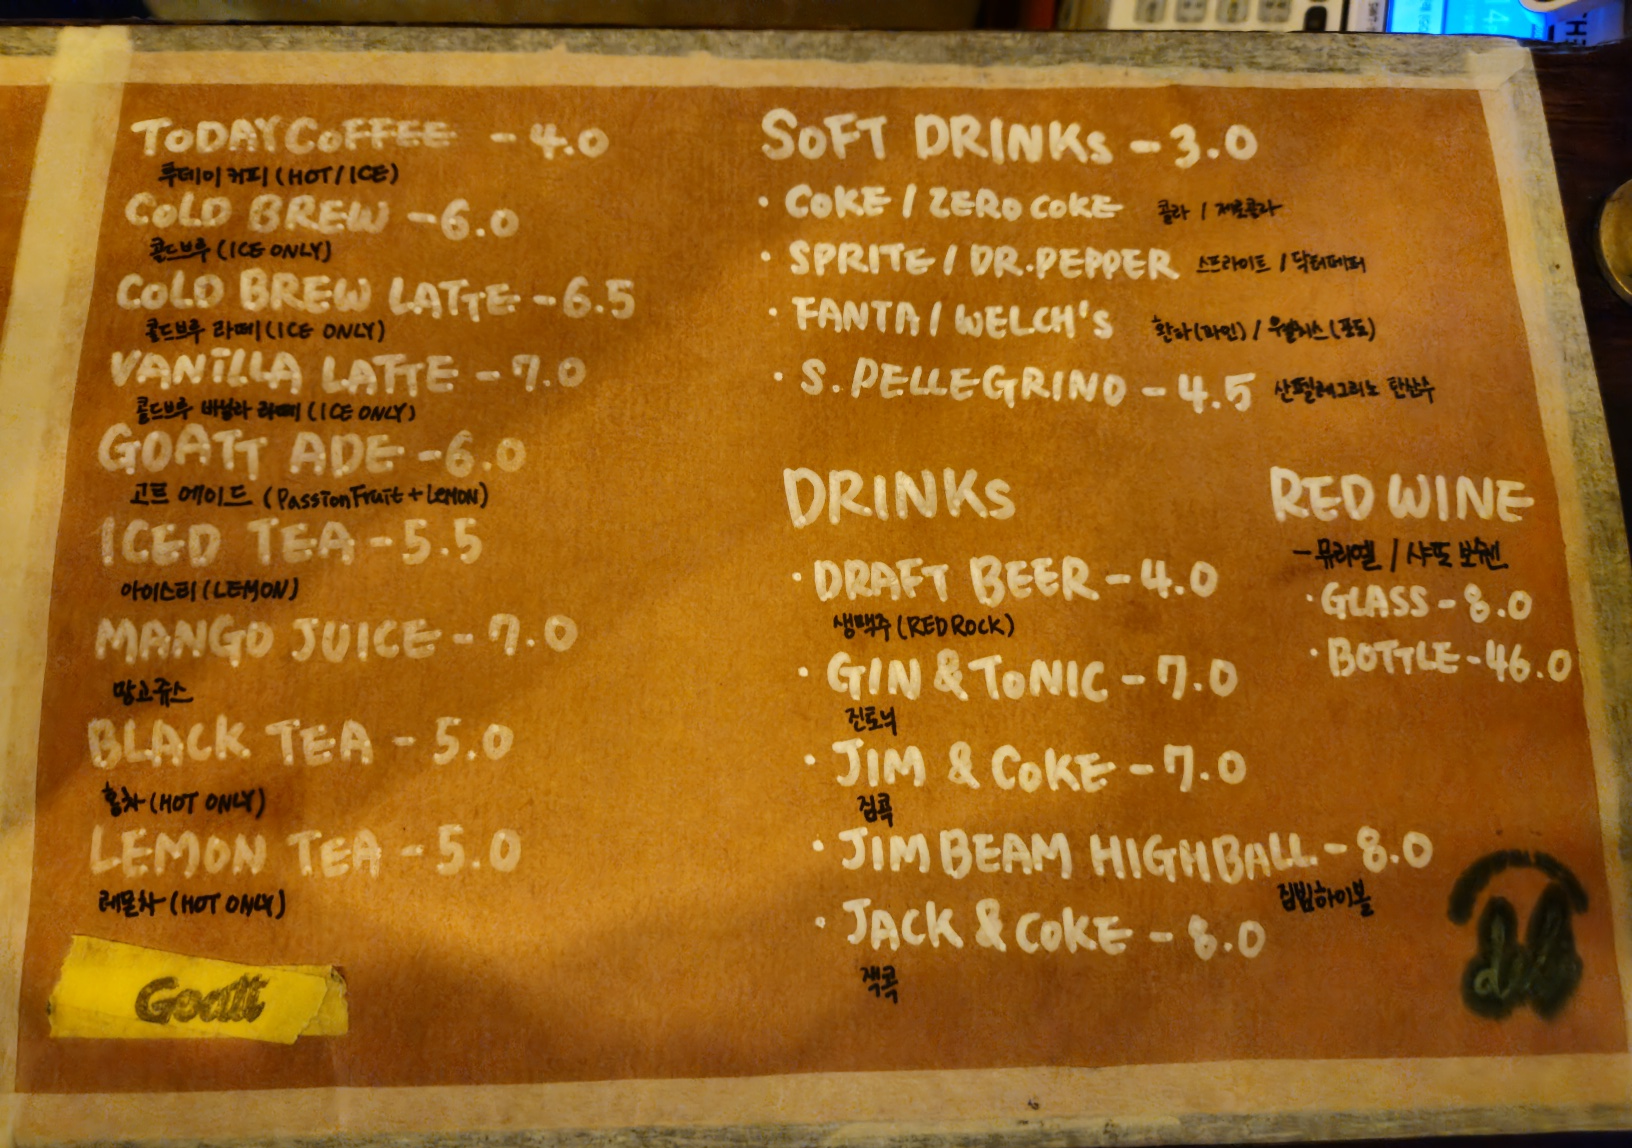 TODAY COFFEE - 4.0
투데이 커피 (HOT / ICE)
COLD BREW - 6.0
콜드브루 (ICE ONLY)
COLD BREW LATTE - 6.5
콜드브루 라떼 (ICE ONLY)
VANILLA LATTE - 7.0
콜드브루 바닐라 라떼 (ICE ONLY)
GOATT ADE - 6.0
고트 에이드 (Passion Fruit + LEMON)
ICED TEA - 5.5
아이스티 (LEMON)
MANGO JUICE - 7.0
망고쥬스
BLACK TEA - 5.0
홍차 (HOT ONLY)
LEMON TEA - 5.0
레몬차 (HOT ONLY)
Goatt
SOFT DRINKs - 3.0
· COKE / ZERO COKE 콜라 / 제로콜라
· SPRITE / DR.PEPPER 스프라이트 / 닥터페퍼
· FANTA / WELCH'S 환타 (파인) / 웰치스 (포도)
· S. PELLEGRINO - 4.5 산펠레그리노 탄산수
DRINKs
· DRAFT BEER - 4.0
생맥주 (RED ROCK)
· GIN & TONIC - 7.0
진토닉
· JIM & COKE - 7.0
짐콕
· JIM BEAM HIGHBALL - 8.0
짐빔하이볼
· JACK & COKE - 8.0
잭콕
RED WINE
- 뮤리엘 / 샤또 보쉔
· GLASS - 8.0
· BOTTLE - 46.0